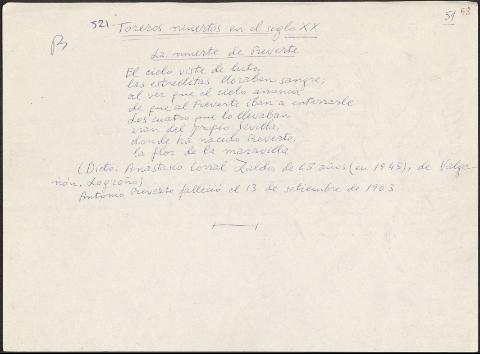 521 Toreros muertos en el siglo XX 51 58
La muerte de Reverte
El cielo viste de luto,
las estrellitas lloraban sangre,
al ver que el cielo anuncia
de que al Reverte iban a enterrarle
Los cuatro que lo llevaban
eran del propio Sevilla,
donde ha nacido Reverte,
la flor de la maravilla
(Dictó: Anastasio Corral Zaldo, de 65 años (en 1945), de Valga-
ñón, Logroño)
Antonio Reverte falleció el 13 de setiembre de 1903